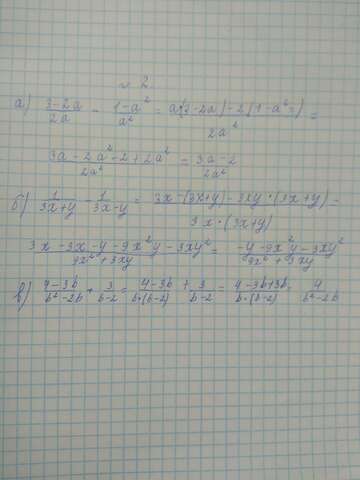 № 2.
а) (3-2a)/(2a) - (1-a²)/(a²) = (a(3-2a)-2(1-a²))/(2a²) =
(3a-2a²-2+2a²)/(2a²) = (3a-2)/(2a²)
б) 1/(3x+y) - 1/(3x-y) = (3x-(3x+y)-3xy·(3x+y))/(3x·(3x+y)) =
(3x-3x-y-9x²y-3xy²)/(9x²+3xy) = (-y-9x²y-3xy²)/(9x²+3xy)
в) (4-3b)/(b²-2b) + 3/(b-2) = (4-3b)/(b·(b-2)) + 3/(b-2) = (4-3b+3b)/(b·(b-2)) = 4/(b²-2b)